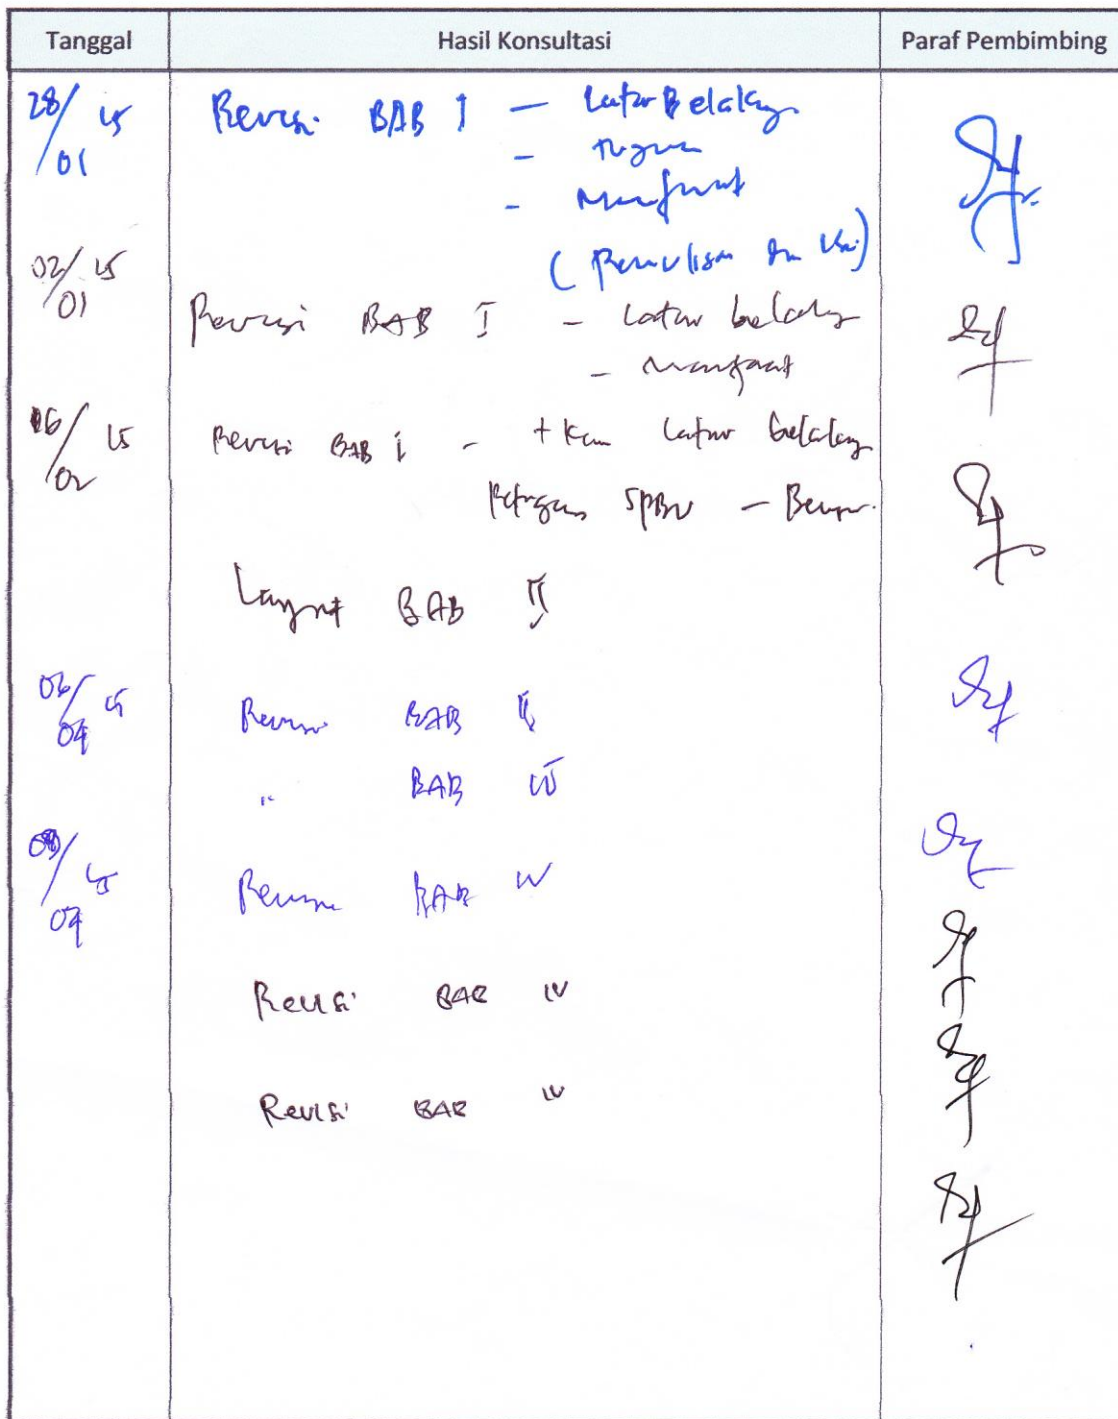 Tanggal Hasil Konsultasi Paraf Pembimbing
28/01 15 Revisi BAB I - Latar Belakang
- tujuan
- Manfaat
(Penulisan
02/01 15
Revisi BAB I - Latar belakang
- Manfaat
16/02 15 Revisi BAB I - + kan Latar belakang
Petugas SPBU -
Lanjut BAB II
06/04 15 Revisi BAB II
" BAB III
08/04 15 Revisi BAB IV
Revisi BAB IV
Revisi BAB IV